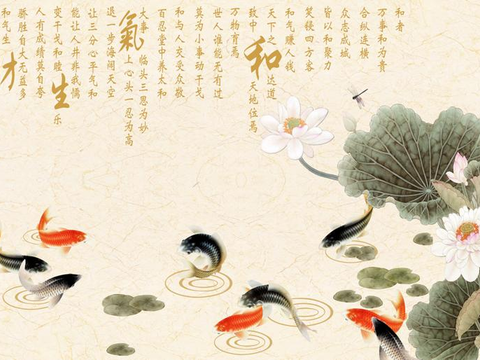 和者
万事和为贵
合纵连横
众志成城
皆以和聚力
笑接四方客
和气赚人钱
天下之达道
致中和天地位焉
万物育焉
世人谁能无有过
莫为小事动干戈
和与人交受众敬
百忍堂中养太和
大事临头三思为妙
氣上心头一忍为高
退一步海阔天空
让三分心平气和
能让人并非我懦
变干戈和睦生乐
人有成绩莫自夸
骄胜自大无益多
和气生才